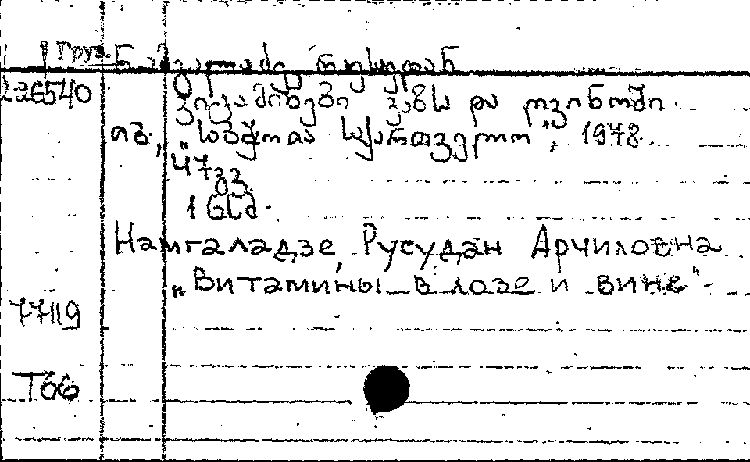 Груз. ნამგალაძე, რუსუდან
226540 ვიტამინები ვაზსა და ღვინოში.
თბ., "საბჭოთა საქართველო", 1978.
47 გვ.
1 ცალ.
Намгаладзе, Русудан Арчиловна
„Витамины в лозе и вине".
77119
T66